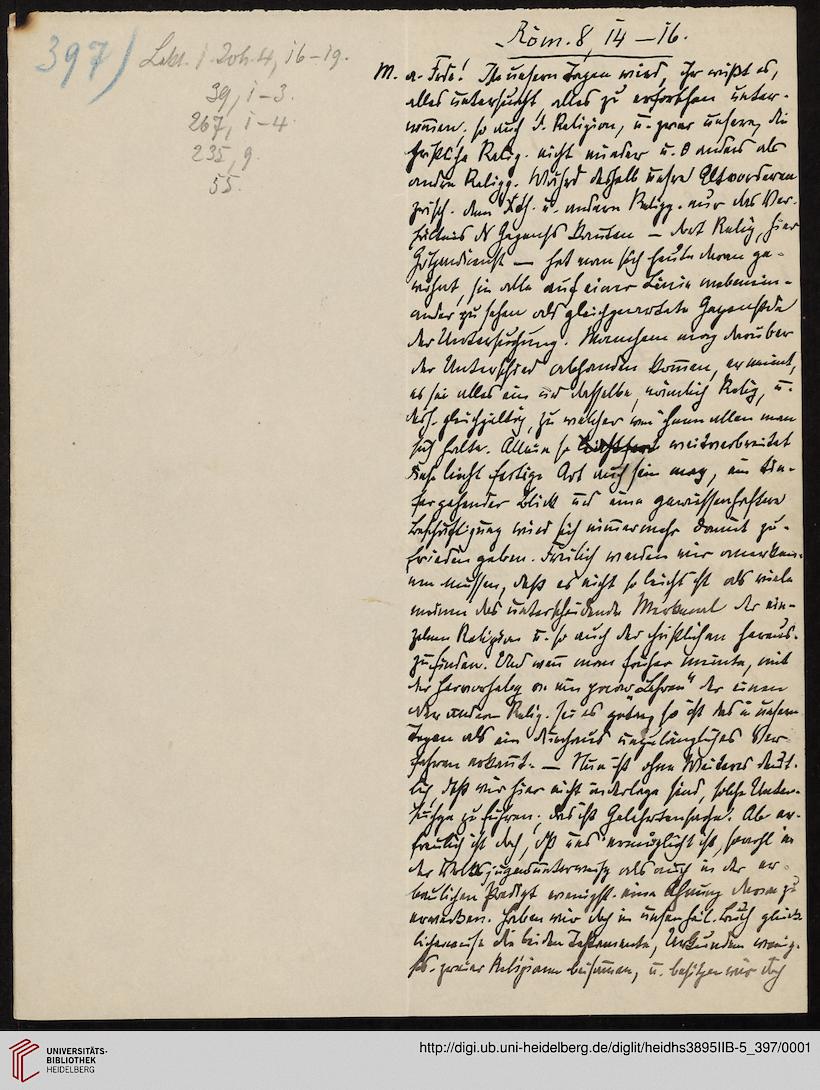 397)
Lekt. 1. Joh. 4, 16–19.
39, 1–3.
267, 1–4.
235, 9.
55.
Röm. 8, 14–16.
M. a. Frde! In unsern Tagen wird, Ihr wißt es,
alles untersucht, alles zu erforschen unter-
nom̄en, so auch d. Religion, u. zwar unsere, die
christliche Relig. nicht minder u. anders als
andre Religg. Während deshalb unsre Altvordern
zwisch. dem Xth. u. andern Religg. nur das Ver-
hältnis des Gegensatzs kannten — dort Relig., hier
Götzendienst — hat man sich heute daran ge-
wöhnt, sie alle auf einer Linie nebenein-
ander zu sehen als gleichgeartete Gegenstände
der Untersuchung. Manchem mag darüber
der Unterschied abhanden kom̄en, er meint,
es sei alles ein und dasselbe, nämlich Relig., u.
desh. gleichgültig, zu welcher von ihnen allen man
sich halte. Allein so weitverbreitet
diese leicht fertige Art auch sein mag, ein tie-
fergehender Blick und eine gewissenhaftere
Beschäftigung wird sich nim̄ermehr damit zu-
frieden geben. Freilich werden wir anerken-
nen müssen, daß es nicht so leicht ist als viele
meinen das unterscheidende Merkmal der ein-
zelnen Religion u. so auch der christlichen heraus-
zufinden. Und wenn man früher meinte, mit
der Hervorhebg von ein paar „Lehren" der einen
oder andern Relig. sei es getan, so ist das in unsern
Tagen als ein durchaus unzulängliches Ver-
fahren erkannt. — Nun ist ohne Weiteres deut-
lich, daß wir hier nicht in der Lage sind, solche Unter-
suchgn zu führen; das ist Gelehrtensache. Aber er-
freulich ist doch, daß uns ermöglicht ist, sowohl in
der Jugendunterweisg als auch in der er-
baulichen Predigt wenigst. eine Ahnung davon zu
erwecken. Haben wir doch in unsrer heil. Buch glück-
licherweise die beiden Testamente, Urkunden wenig-
st. zweier Religionen beisam̄en, u. besitzen wir doch
UNIVERSITÄTS-
BIBLIOTHEK
HEIDELBERG
http://digi.ub.uni-heidelberg.de/diglit/heidhs3895IIB-5_397/0001